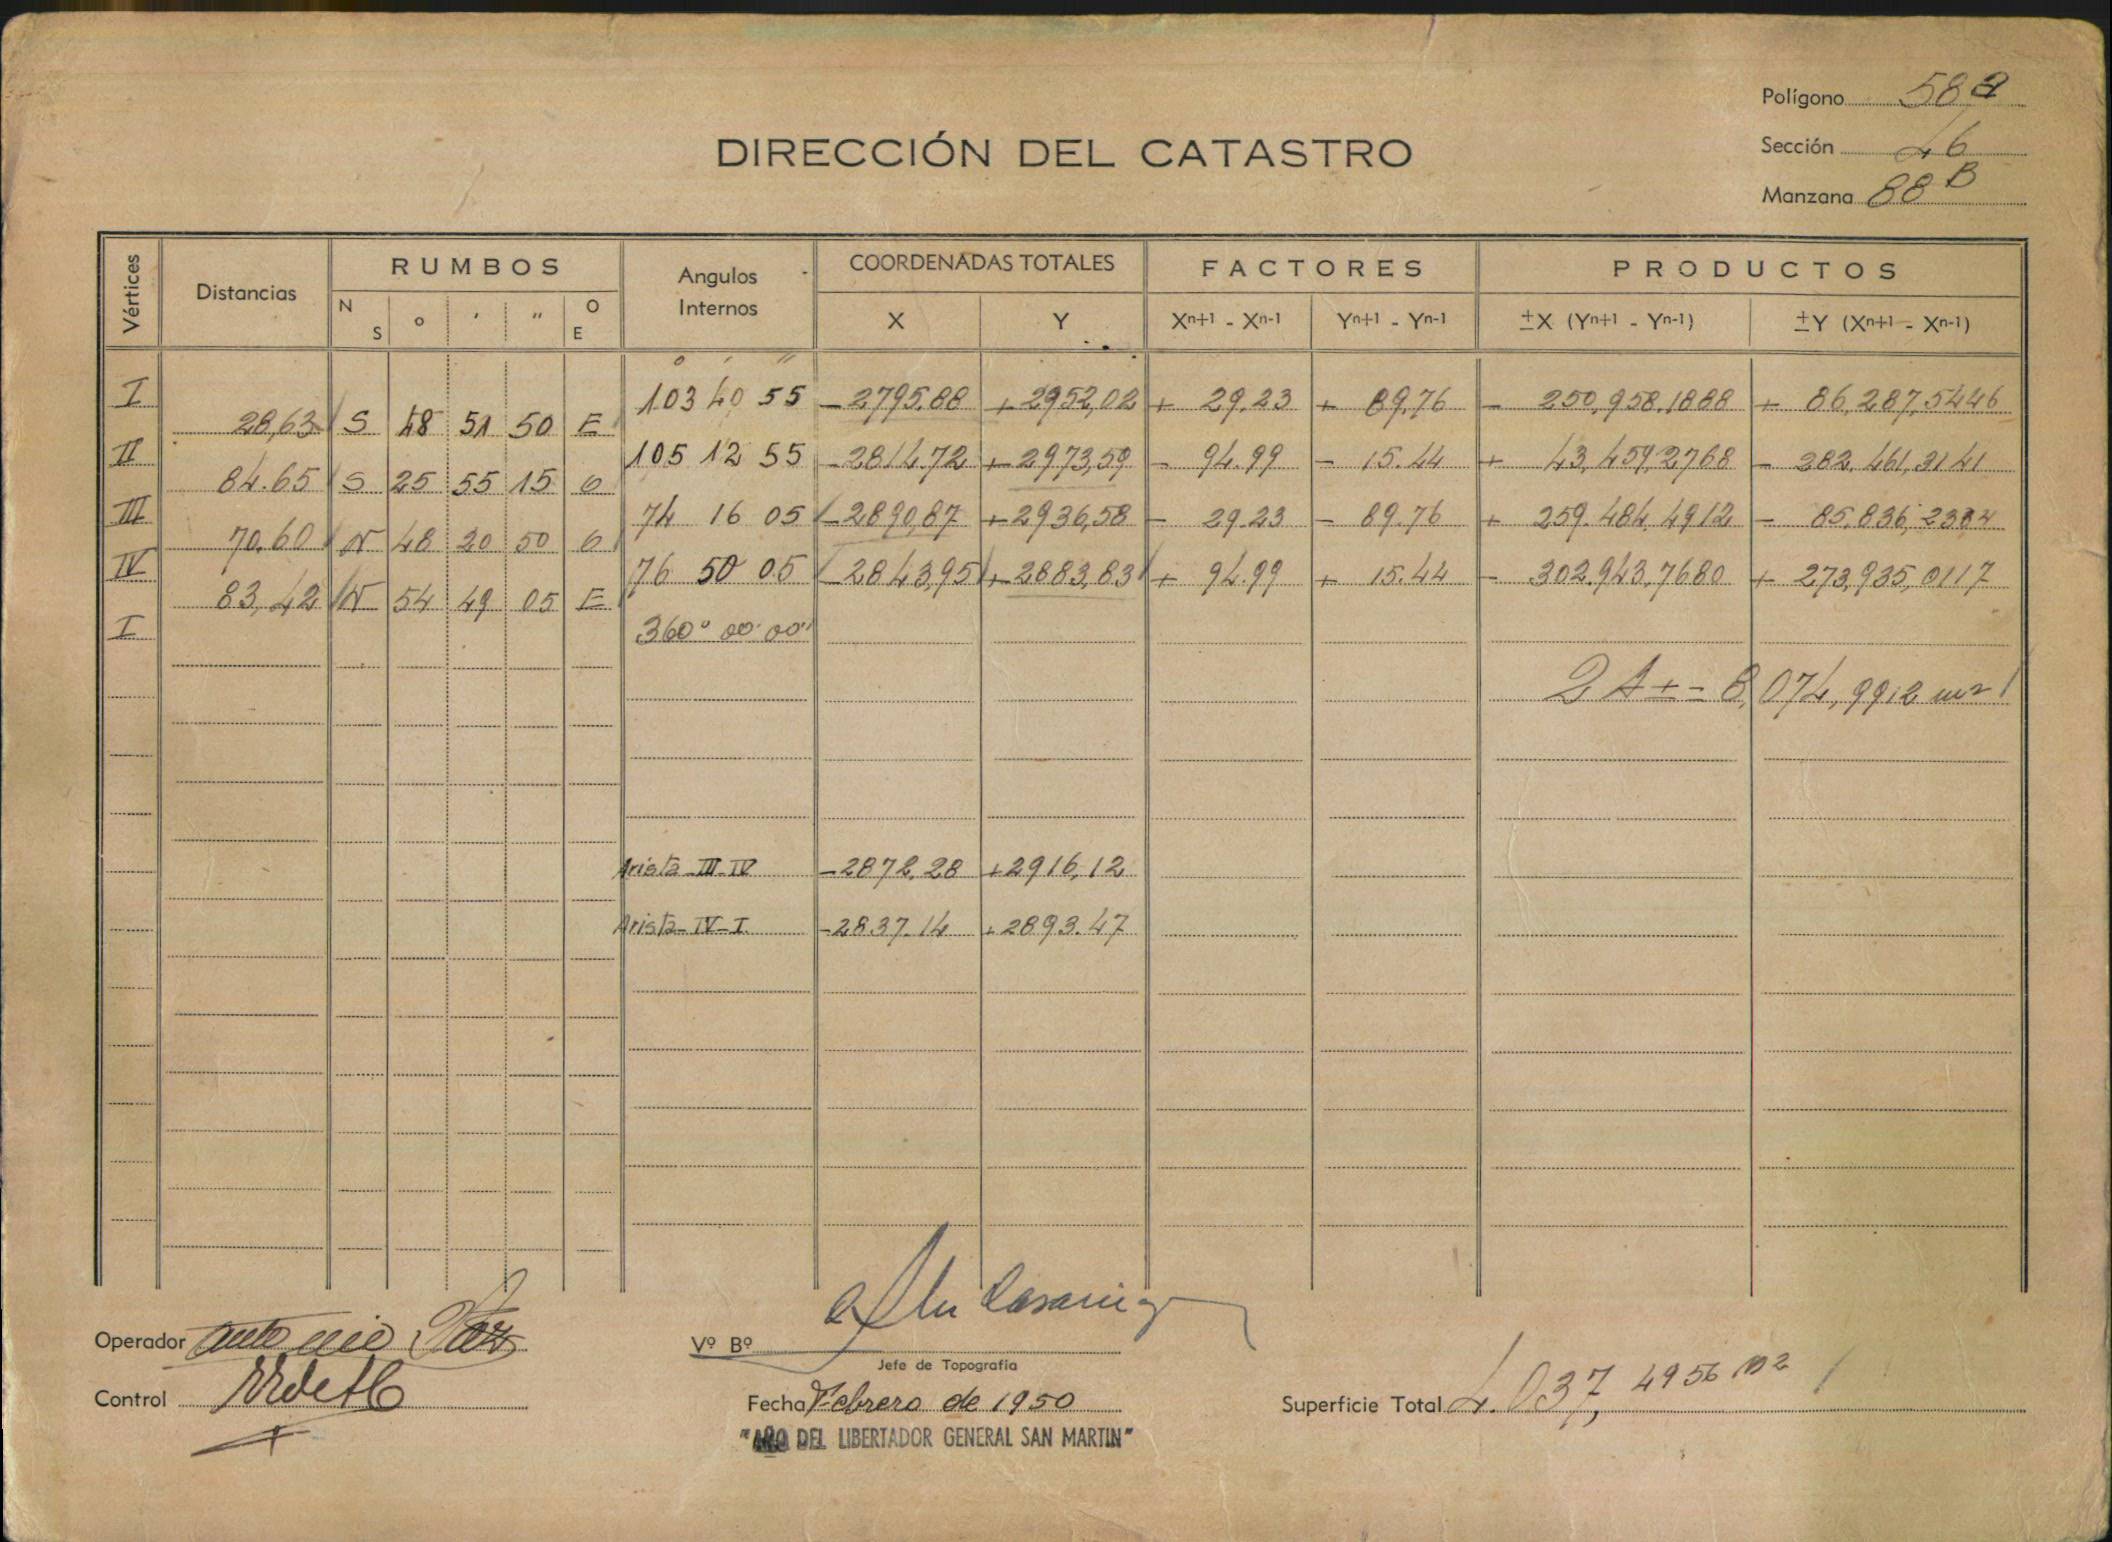 Polígono 58 a
DIRECCIÓN DEL CATASTRO
Sección 46
Manzana 88 B
Vértices Distancias RUMBOS Angulos Internos COORDENADAS TOTALES FACTORES PRODUCTOS
N S o ' " O E X Y Xn+1 - Xn-1 Yn+1 - Yn-1 ±X (Yn+1 - Yn-1) ±Y (Xn+1 - Xn-1)
o ' "
I 103 40 55 -2795.88 +2952,02 + 29.23 + 89.76 - 250,958.1888 + 86,287,5446
28,63 S 48 51 50 E
II 105 12 55 -2814.72 +2973,59 - 94.99 - 15.44 + 43,459,2768 - 282.461,3141
84.65 S 25 55 15 O
III 74 16 05 -2890,87 +2936,58 - 29.23 - 89.76 + 259.484.4912 - 85.836,2334
70.60 N 48 20 50 O
IV 76 50 05 -2843,95 +2883,83 + 94.99 + 15.44 - 302.943,7680 + 273,935,0117
83,42 N 54 49 05 E
I 360° 00' 00"
2 A ± = 8,074,9912 m2
Arista III-IV -2872.28 +2916,12
Arista IV-I -2837.14 +2893.47
Operador Antonio
Vº Bº
Jefe de Topografía
Control
Fecha Febrero de 1950
Superficie Total 4.037,4956 m2
"AÑO DEL LIBERTADOR GENERAL SAN MARTIN"